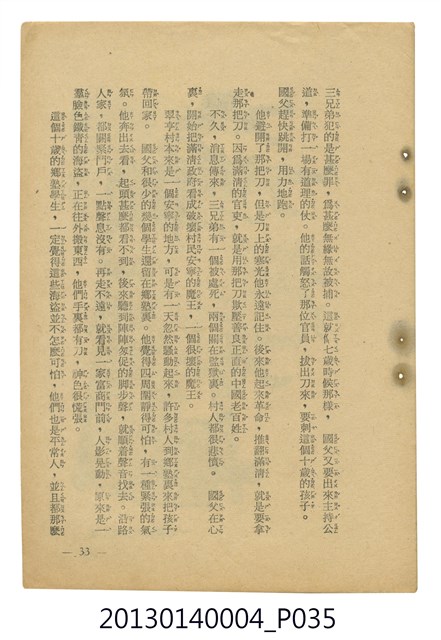 三兄弟犯的是甚麽罪，爲甚麽無緣無故被捕。這就像七歲時候那樣，　國父又要出來主持公
道，準備打一場有道理的仗。他的話觸怒了那位官員，拔出刀來，要刺這個十歲的孩子。
國父趕快跳開，用力地跑。
他避開了那把刀，但是刀上的寒光他永遠記住。後來他起來革命，推翻滿清，就是要拿
走那把刀。因爲滿清的官吏，就是用那把刀欺壓善良正直的中國老百姓。
不久，消息傳來，三兄弟有一個被處死，兩個關在監獄裏。村人都很悲憤。　國父在心
裏，開始把滿淸政府看成破壞村民安寧的魔王，一個很壞的魔王。
翠亨村本來是一個安寧的地方，可是有一天忽然騷動起來，許多村人到鄉塾裏來把孩子
帶回家。　國父和很少的幾個學生還留在鄉塾裏。他覺得四周圍靜得可怕，有一種緊張的氣
氛。他奔出去看，起頭甚麽都看不到，後來聽到陣陣匆促的脚步聲，就順着聲音找去。沿路
人家，都關緊門戶，一點聲息沒有。再走不遠，就看見一家富商門前，人影晃動，原來是一
羣臉色鐵青的海盜，正在往外搬東西，他們手裏都有刀，神色很慌張。
這個十歲的鄉塾學生，一定覺得這些海盜並不怎麽可怕，他們也是平常人，並且都那麽
— 33 —
20130140004_P035